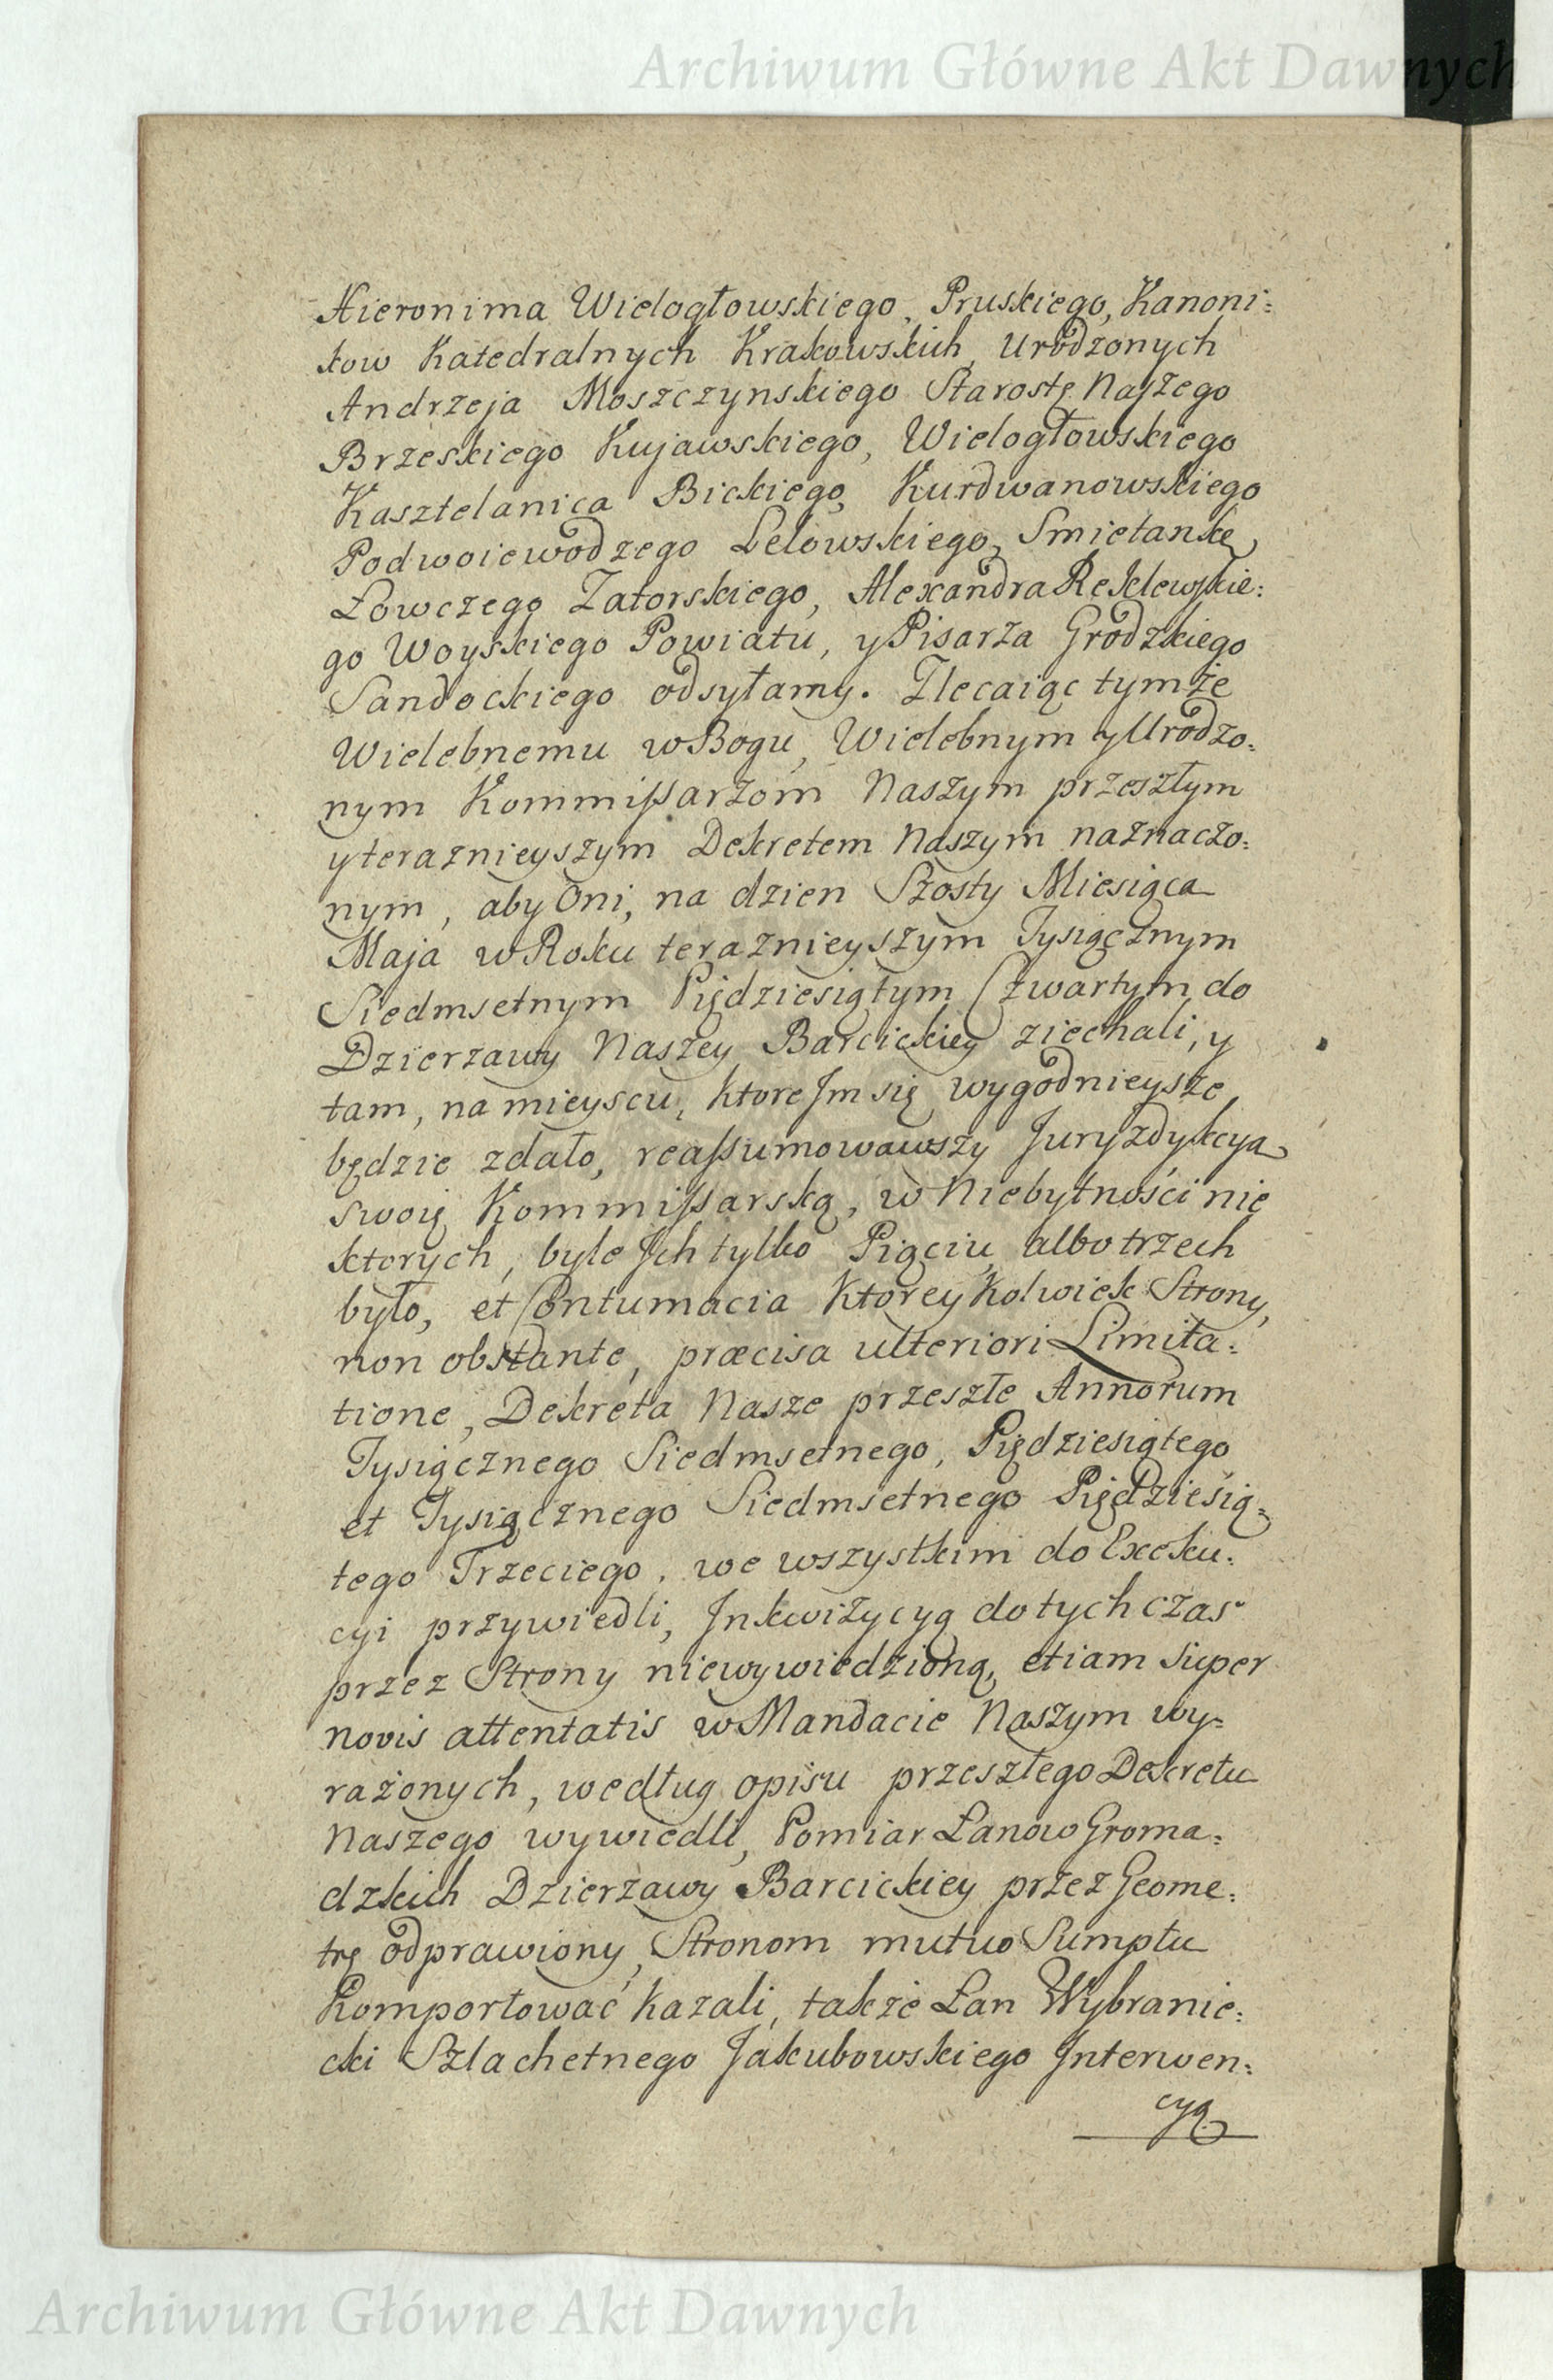 Archiwum Główne Akt Dawnych
Hieronima Wielogłowskiego, Pruskiego, Kanoni:
kow Katedralnych Krakowskich, Urodzonych
Andrzeja Moszczynskiego Starostę Naszego
Brzeskiego Kujawskiego, Wielogłowskiego
Kasztelanica Bickiego, Kurdwanowskiego
Podwoiewodzego Lelowskiego, Smietankę
Łowczego Zatorskiego, Alexandra Reklewskie:
go Woyskiego Powiatu, y Pisarza Grodzkiego
Sandockiego odsyłamy. Zlecaiąc tymże
Wielebnemu w Bogu, Wielebnym y Urodzo:
nym Kommissarzom Naszym przeszłym
y teraznieyszym Dekretem Naszym naznaczo:
nym, aby Oni, na dzien Szosty Miesiąca
Maja w Roku teraznieyszym Tysiącznym
Siedmsetnym Piędziesiątym Czwartym do
Dzierzawy Naszey Barcickiey ziechali, y
tam, na mieyscu, ktore Jm się wygodnieysze
będzie zdało, reassumowawszy Juryzdykcya
swoię Kommissarską, w Niebytności nie
ktorych, byle Jch tylko Pięciu albo trzech
było, et Contumacia Ktorey Kolwiek Strony,
non obstante, præcisa ulteriori Limita:
tione, Dekreta Nasze przeszłe Annorum
Tysiącznego Siedmsetnego, Piędziesiątego
et Tysiącznego Siedmsetnego Piędziesią:
tego Trzeciego, we wszystkim do Exeku:
cyi przywiedli, Jnkwizycyą dotychczas
przez Strony niewywiedzioną, etiam super
novis attentatis w Mandacie Naszym wy:
rażonych, według opisu przeszłego Dekretu
Naszego wywiedli, Pomiar Łanow Groma:
dzkich Dzierzawy Barcickiey przez Geome:
trę odprawiony, Stronom mutuo Sumptu
Komportować kazali, także Łan Wybranie:
cki Szlachetnego Jakubowskiego Jnterwen:
cyą
Archiwum Główne Akt Dawnych